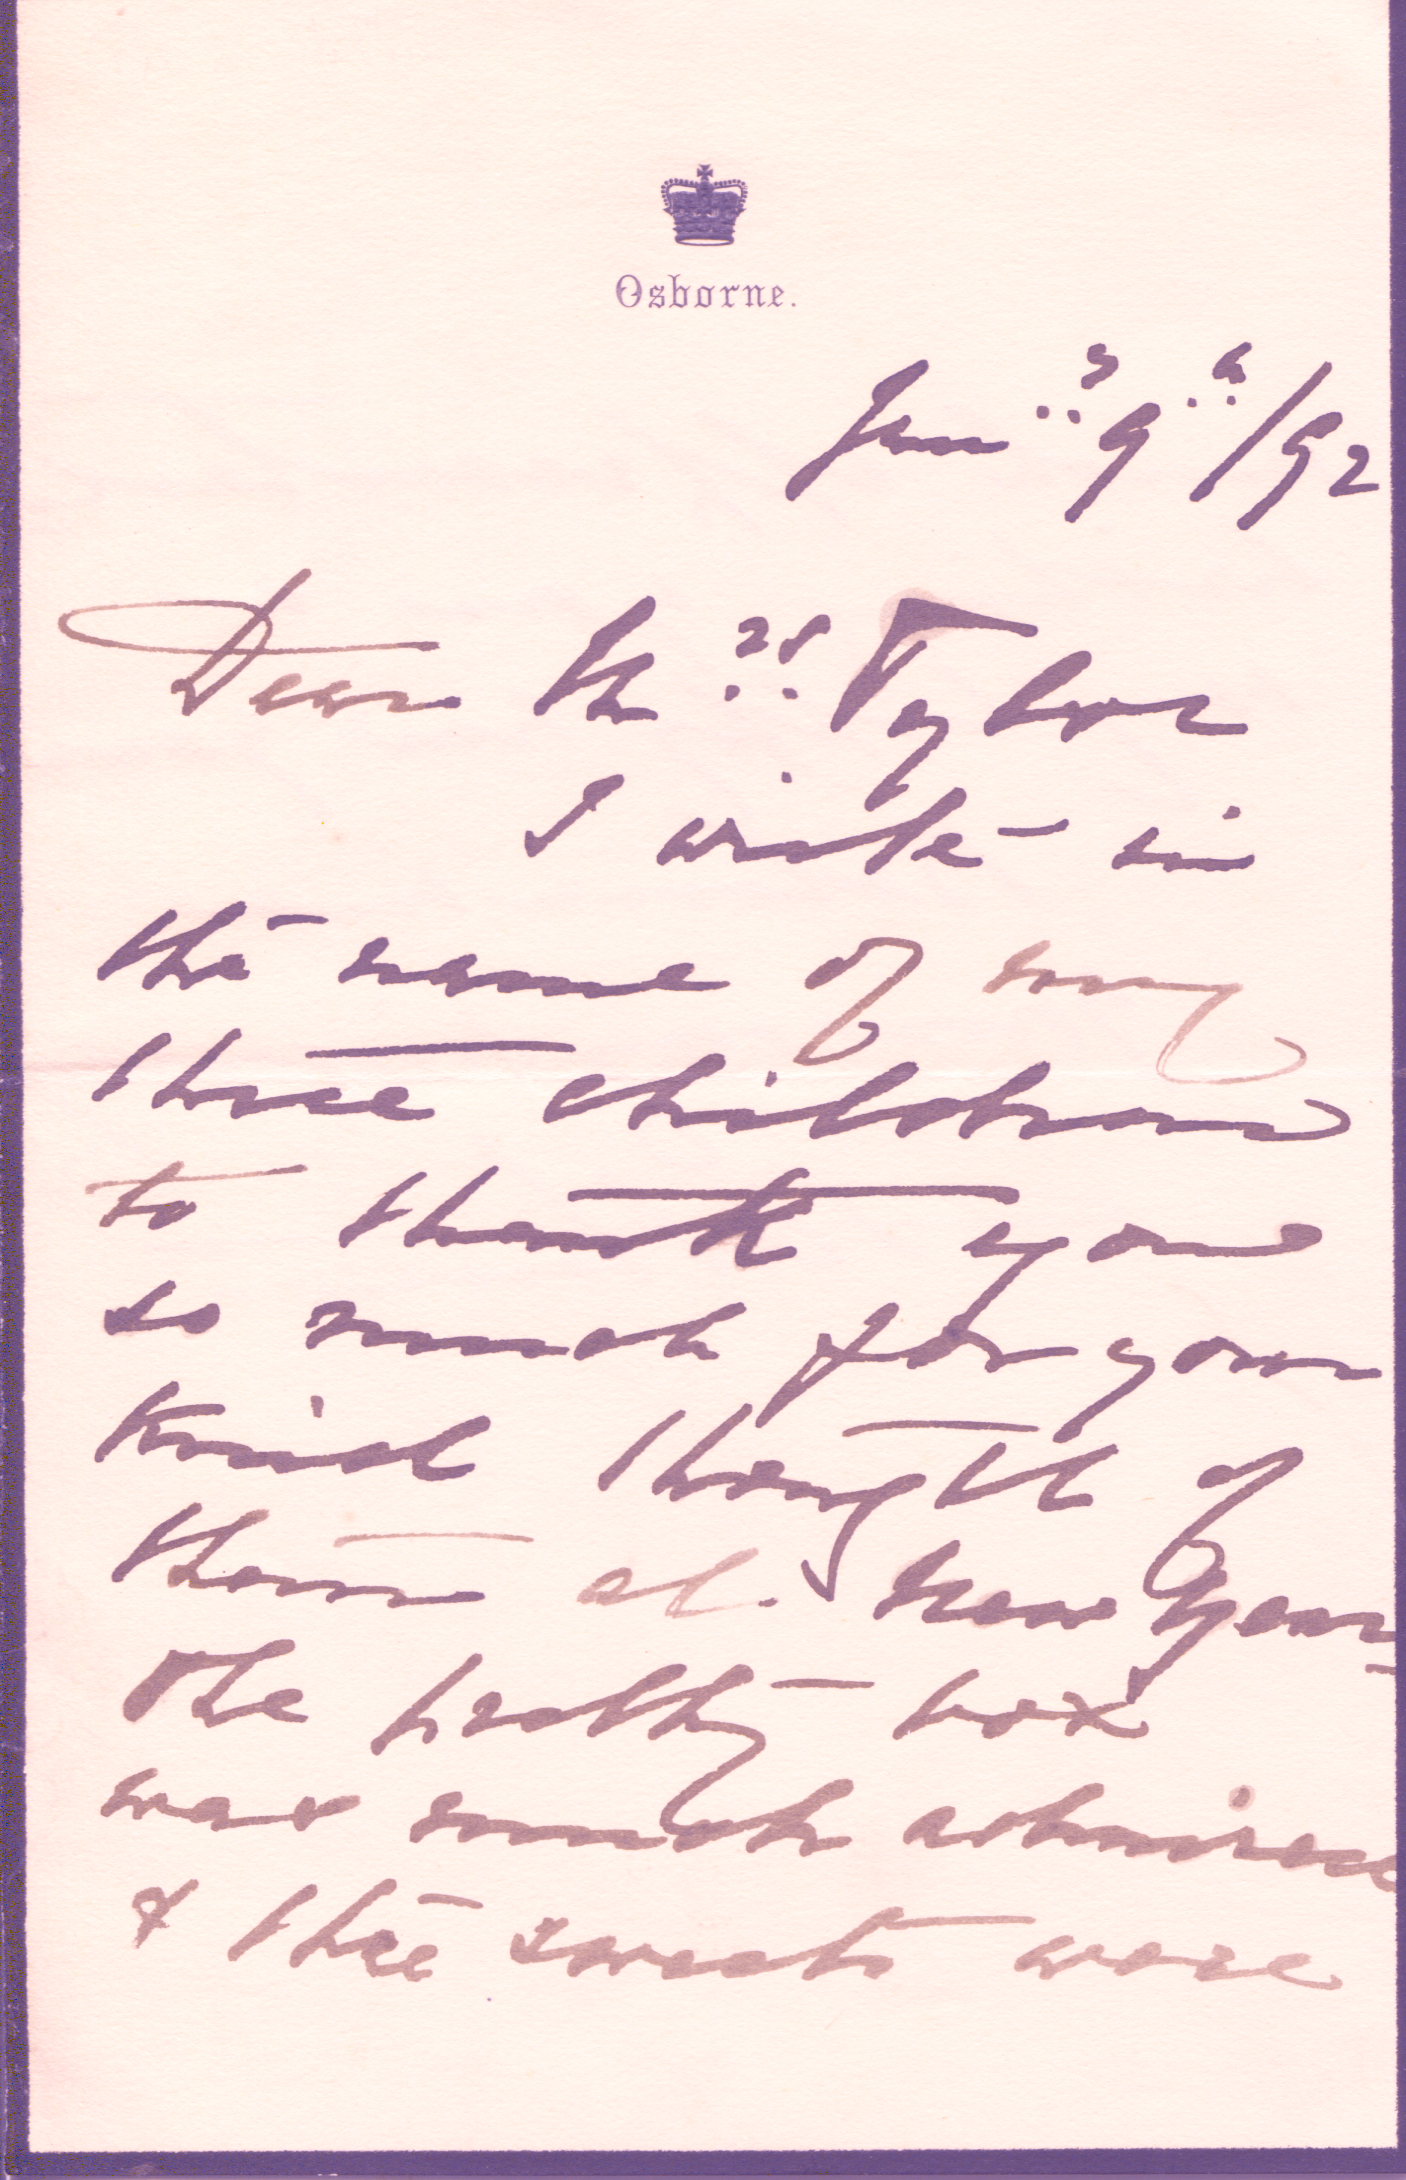 Osborne.
Jan:ʸ 9:ᵗʰ/92
Dear Mʳˢ: Tylor
I write in
the name of my
three children
to thank you
so much for your
kind thought of
them at New Year
The pretty box
was much admired
& the sweets were